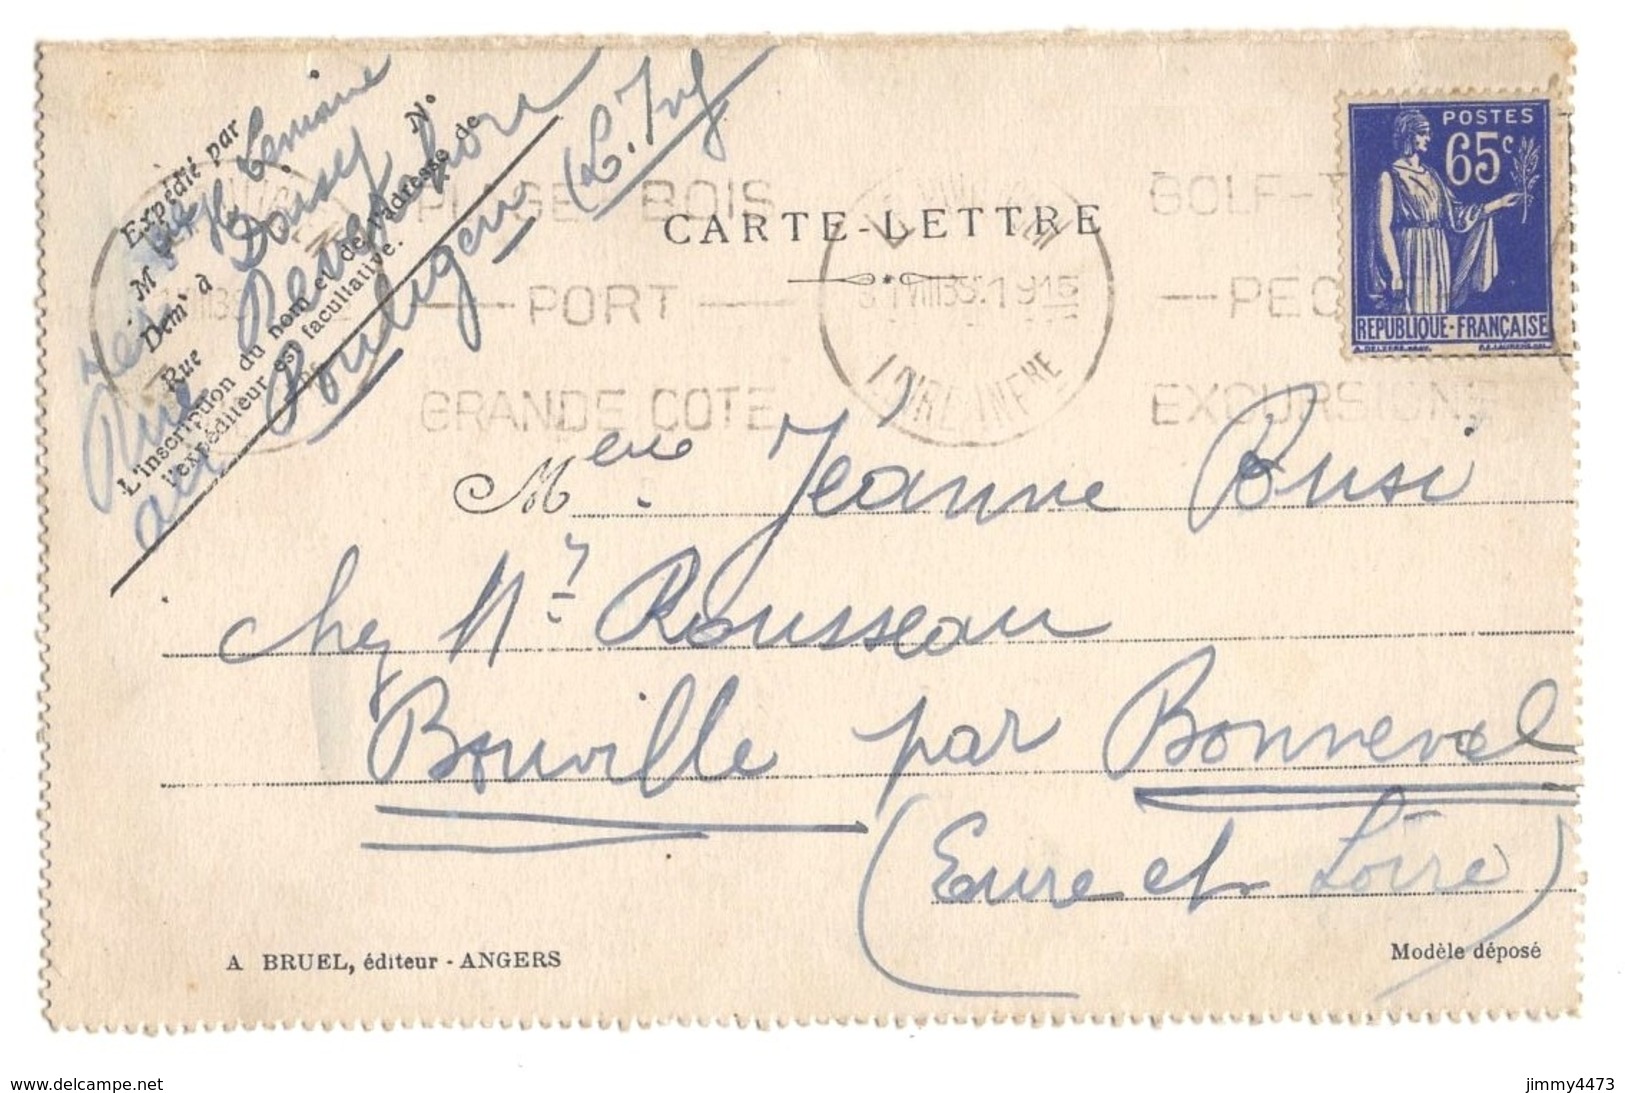 Expédié par
M Lemoine
Dem<sup>t</sup> à
Rue
N°
L'inscription du nom et de l'adresse de
l'expéditeur est facultative.
Pouliguen (L. Inf)
PLAGE BOIS
PORT
GRANDE COTE
LOIRE-INFRE
GOLF-T
PEC
EXCURSIONS
CARTE-LETTRE
POSTES
65c
REPUBLIQUE-FRANÇAISE
Mme Jeanne Busi
chez Mr Rousseau
Bouville par Bonneval
(Eure et Loire)
A BRUEL, éditeur - ANGERS
Modèle déposé
www.delcampe.net
jimmy4473